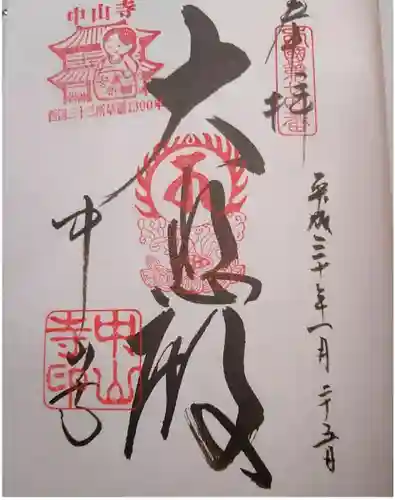 奉拝
西国第廿四番
平成三十年一月二十五日
大悲殿
中山寺
西国三十三所草創1300年
中山寺
中山寺印